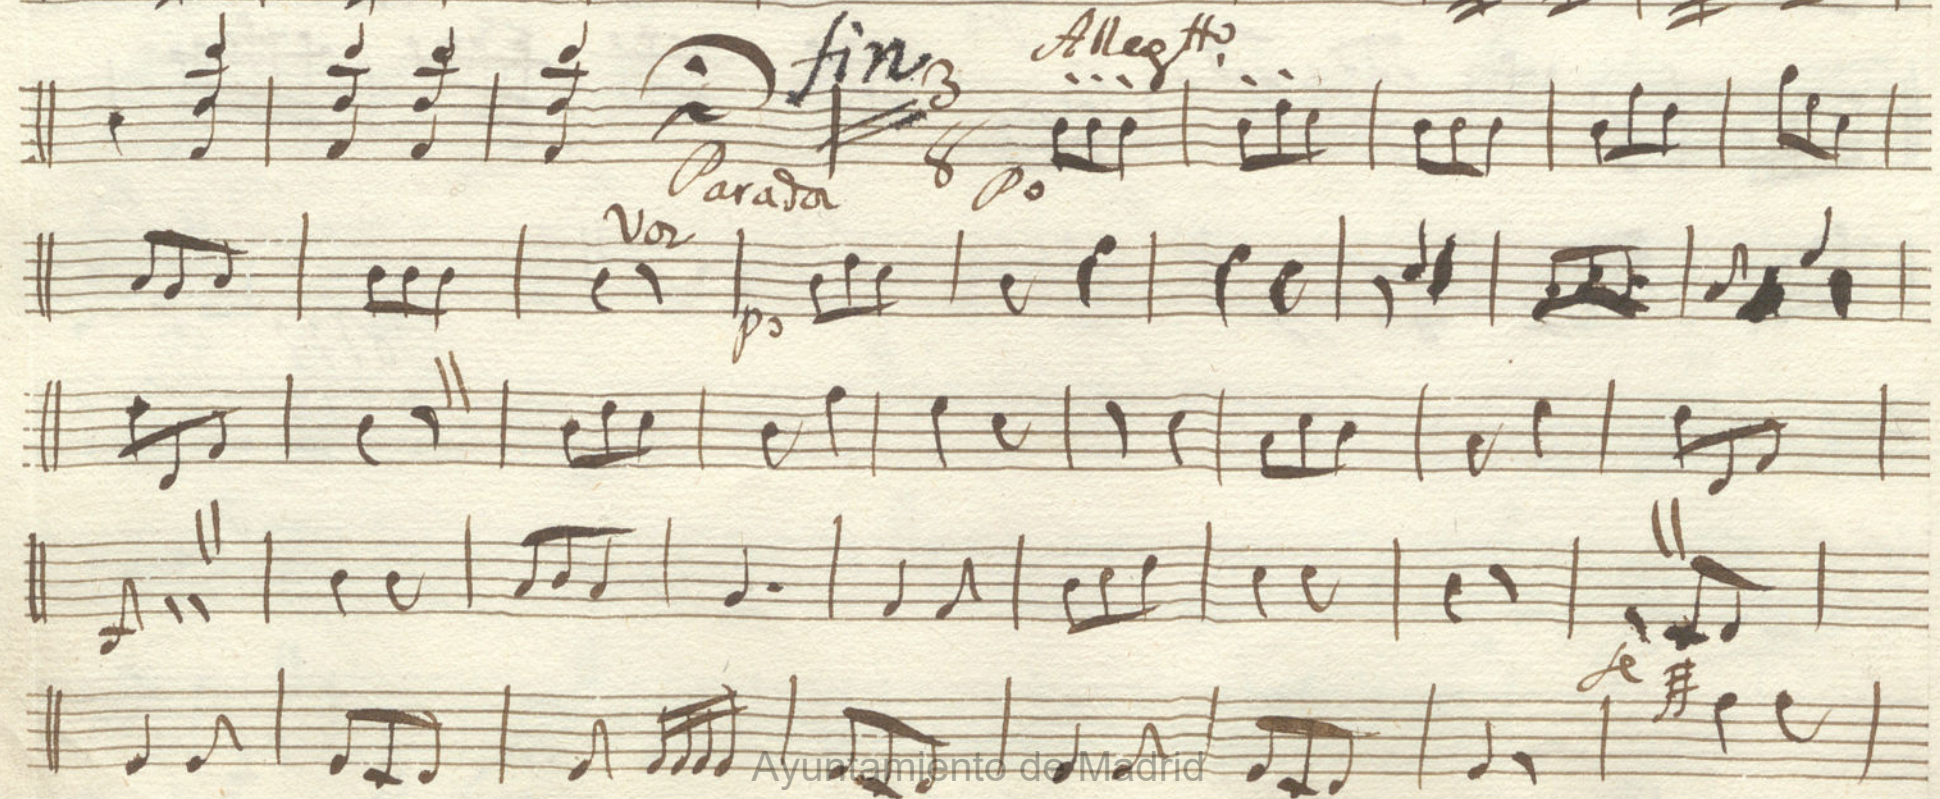 fin
Allegtto
3
8
Parada
Po
Voz
po
fe
Ayuntamiento de Madrid